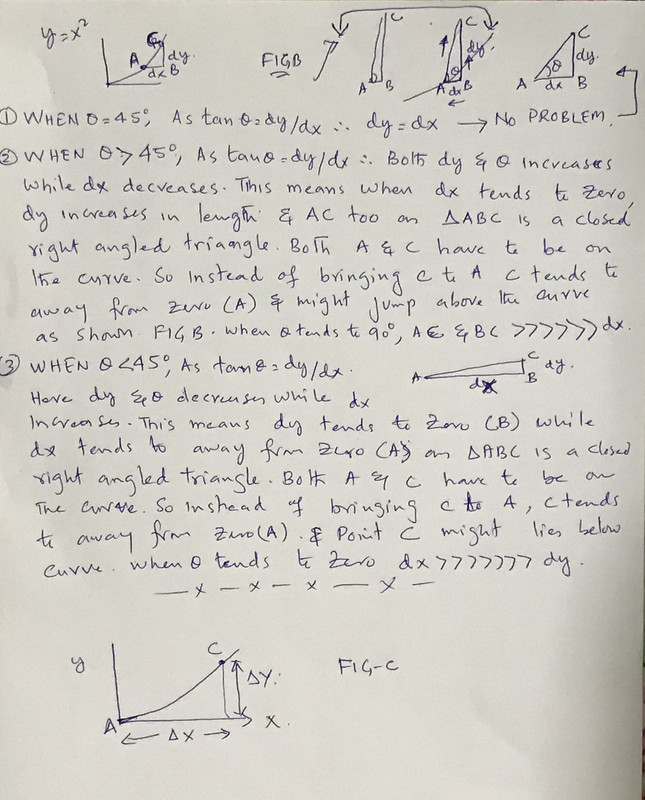 y=x²
C
A dy.
dx B
FIGB
C
A B
C
dy.
θ
A dx B
C
dy.
θ
A dx B
① WHEN θ=45°, As tan θ=dy/dx ∴ dy=dx → No PROBLEM.
② WHEN θ>45°, As tanθ=dy/dx ∴ Both dy & θ increases
while dx decreases. This means when dx tends to Zero,
dy increases in length & AC too as ΔABC is a closed
right angled triangle. Both A & C have to be on
the curve. So instead of bringing C to A C tends to
away from zero (A) & might jump above the curve
as shown FIG B. when θ tends to 90°, AC & BC >>>>>> dx.
③ WHEN θ<45°, As tanθ=dy/dx.
C
A dy.
dx B
Here dy & θ decreases while dx
Increases. This means dy tends to Zero (B) while
dx tends to away from zero (A) as ΔABC is a closed
right angled triangle. Both A & C have to be on
The curve. So instead of bringing C to A, C tends
to away from Zero(A). & Point C might lies below
curve. when θ tends to zero dx >>>>>>> dy.
— x — x — x — x —
y
C
ΔY.
FIG-C
A
X.
ΔX